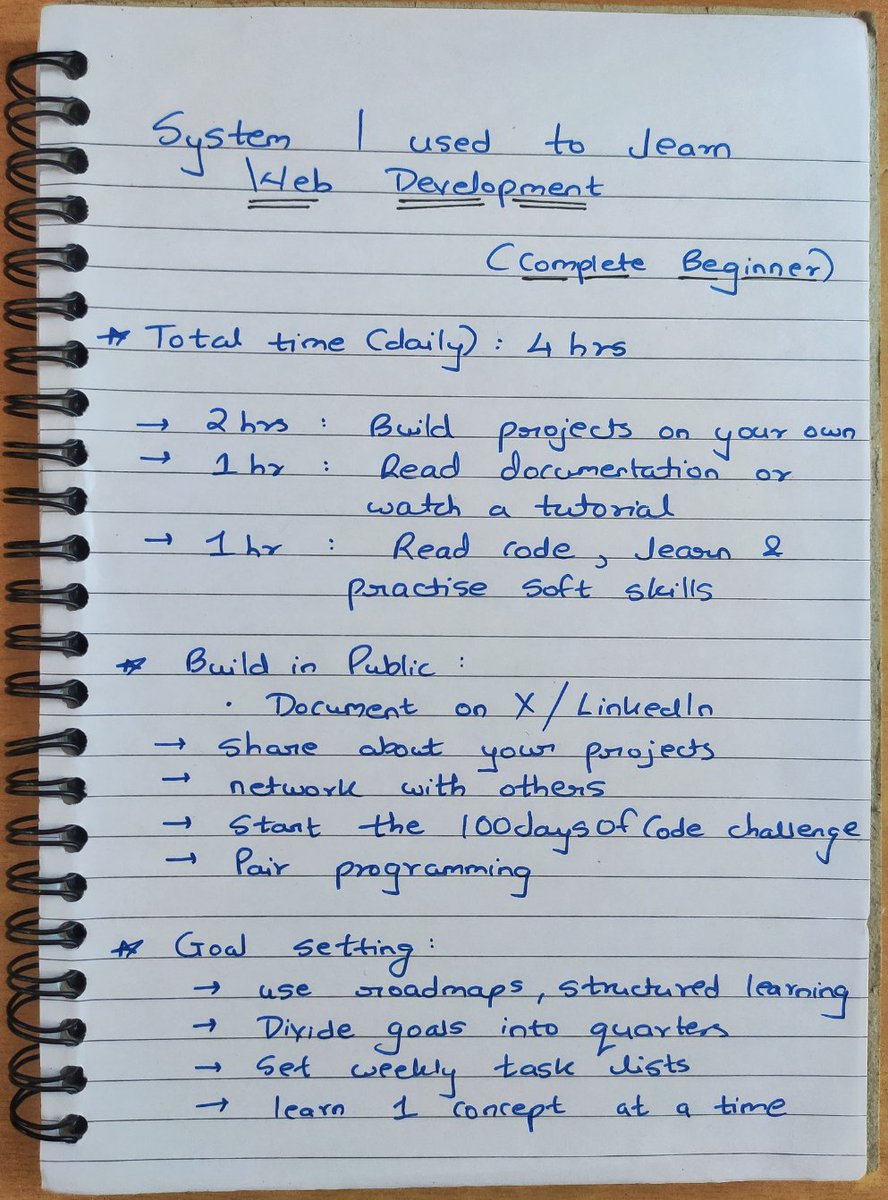 System I used to learn
Web Development
(Complete Beginner)
* Total time (daily) : 4 hrs
→ 2 hrs : Build projects on your own
→ 1 hr : Read documentation or
watch a tutorial
→ 1 hr : Read code, learn &
practise soft skills
* Build in Public :
· Document on X/LinkedIn
→ share about your projects
→ network with others
→ start the 100daysOfCode challenge
→ Pair programming
* Goal setting :
→ use roadmaps, structured learning
→ Divide goals into quarters
→ Set weekly task lists
→ learn 1 concept at a time